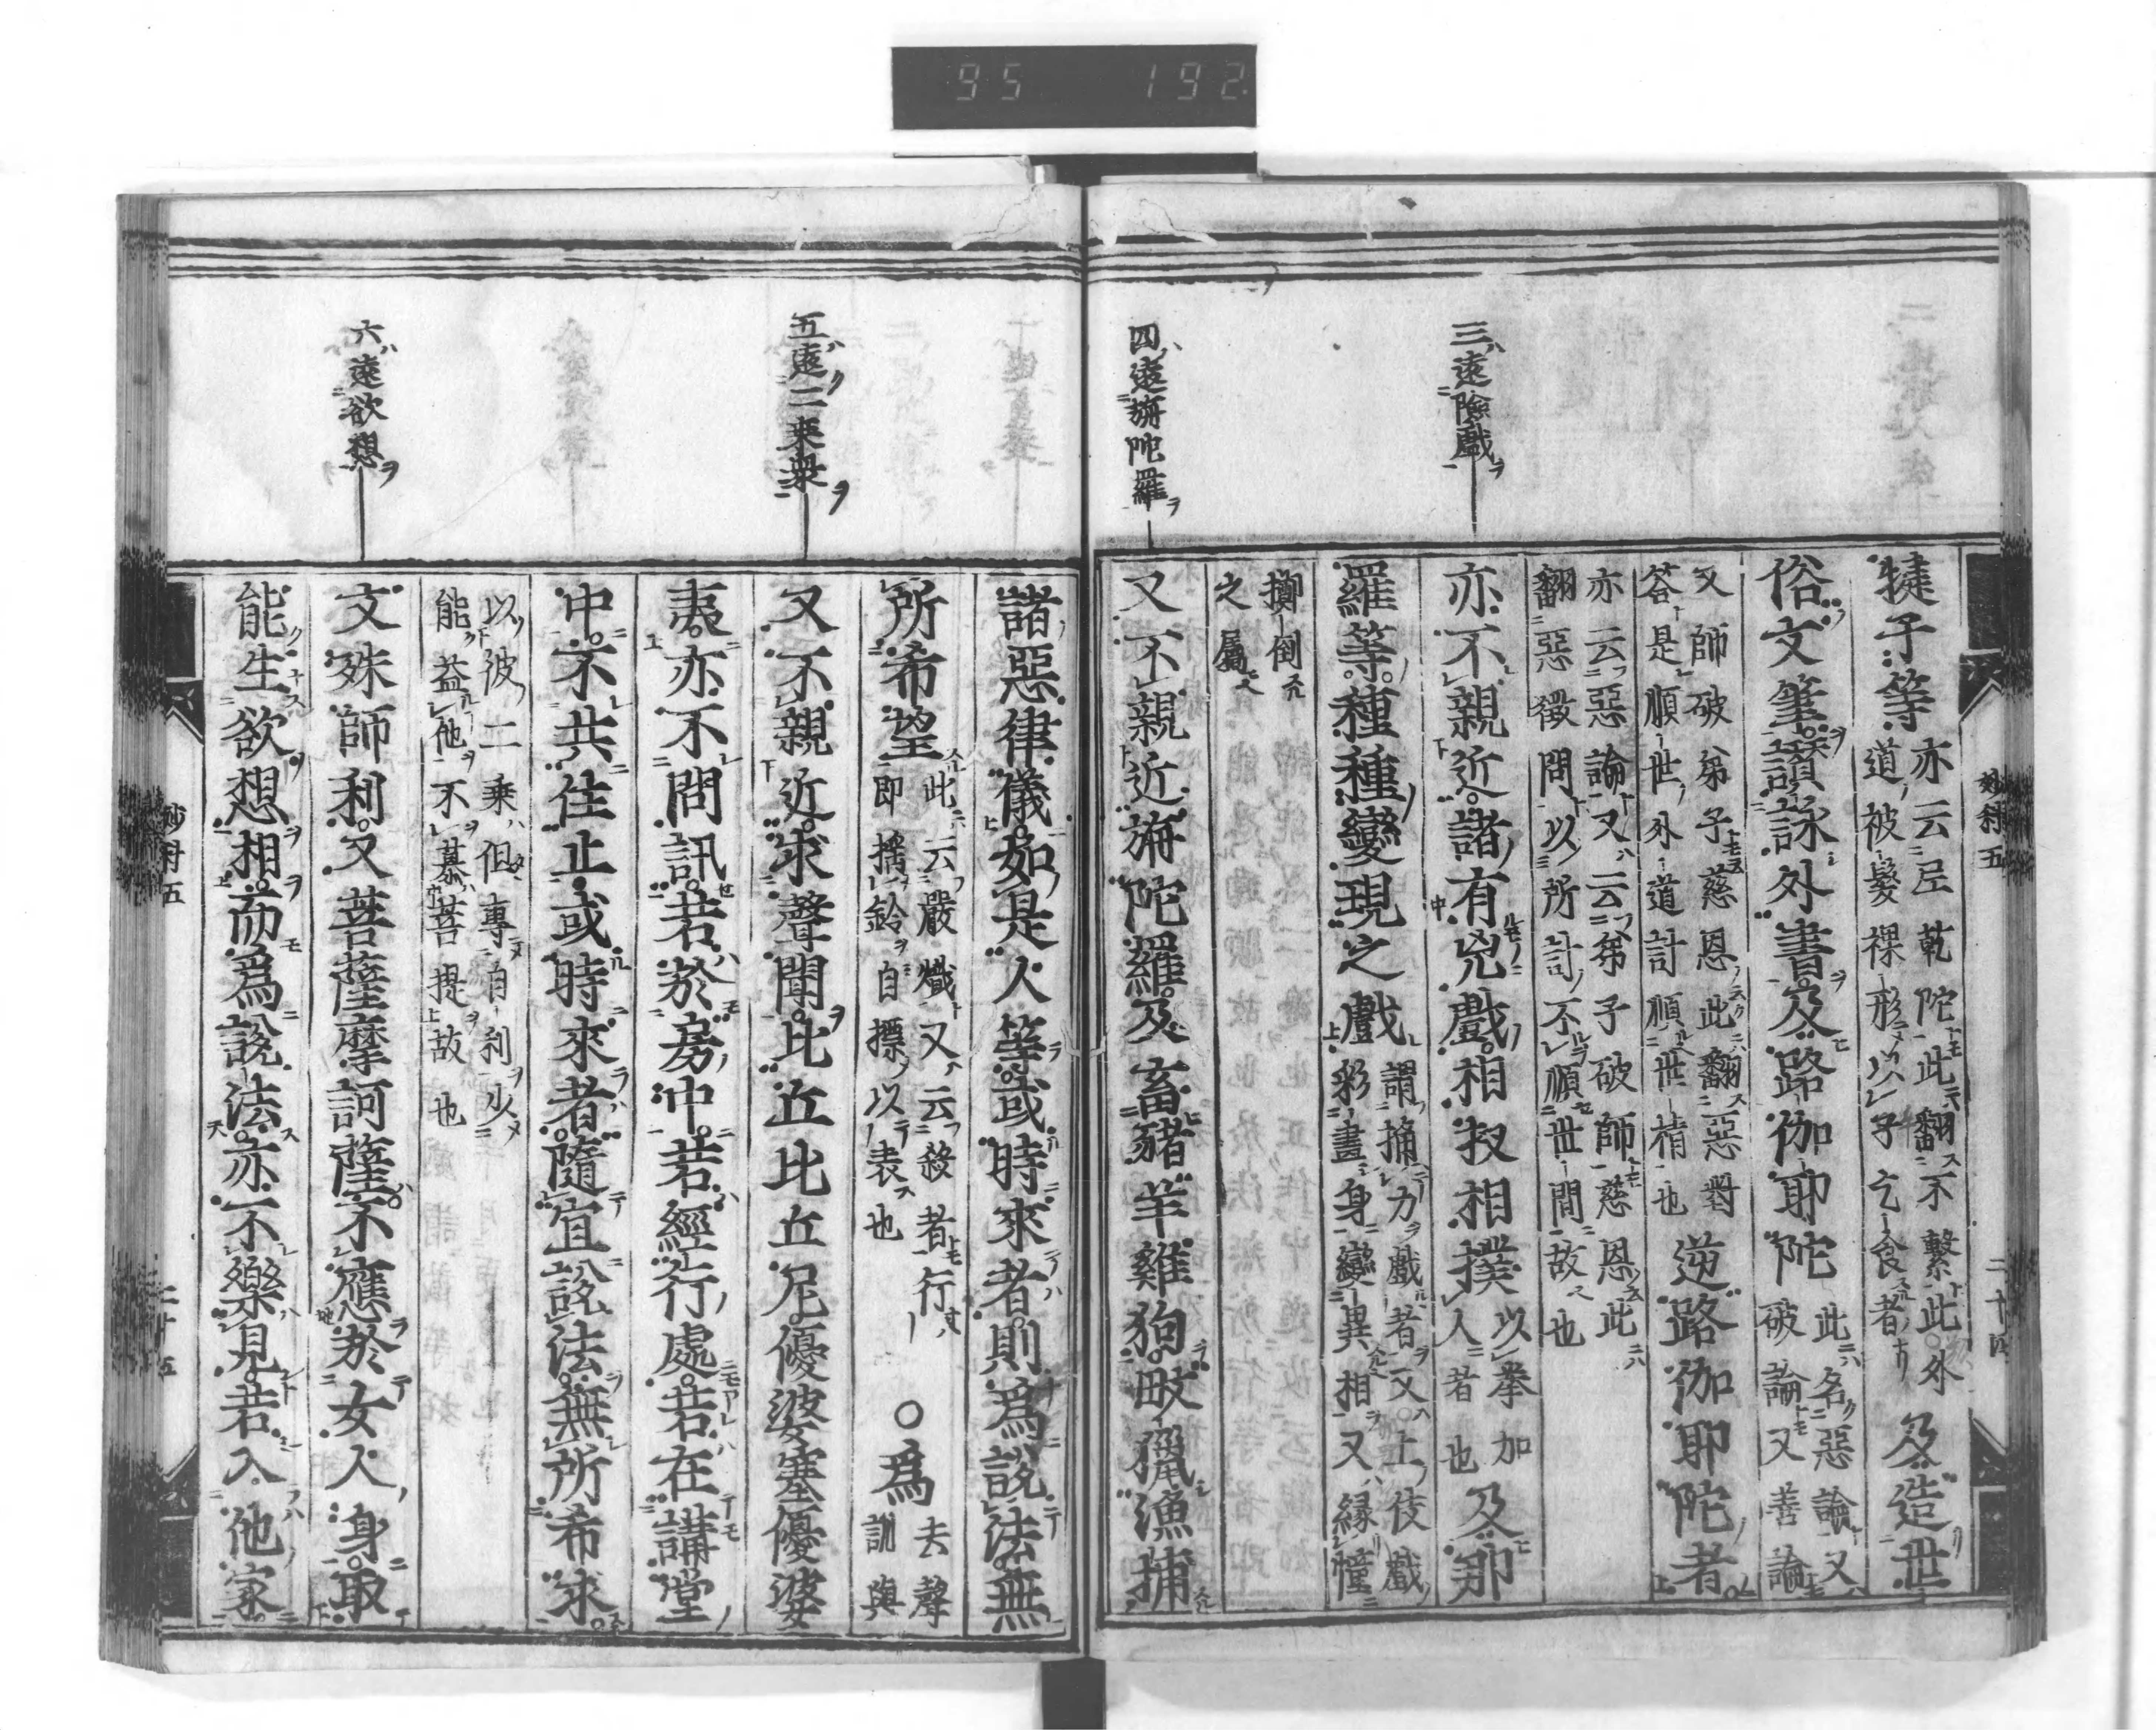 95 192
三遠險戲
四遠旃陀羅
犍子等
亦云尼乾陀此翻不繫此外
道被髮裸形以乞食者
及造世
俗文筆讚詠外書及路伽耶陀
此名惡論又
破論又善論
又師破弟子慈恩此翻惡對
答是順世外道計順世情也
逆路伽耶陀者
亦云惡論又云弟子破師慈恩此
翻惡徵問以所計不順世間故也
亦不親近諸有兇戲相扠相撲
以拳加
人者也
及那
羅等種種變現之戲
謂捔力戲者又上伎戲
彩畫身變異相又緣幢
擲倒
之屬
又不親近旃陀羅及畜豬羊雞狗畋獵漁捕
妙科五
五遠二乘衆
六遠欲想
諸惡律儀如是人等或時來者則爲說法無
所希望
此云嚴熾又云殺者行
即搖鈴自摽以表也
○爲
去聲
訓與
又不親近求聲聞比丘比丘尼優婆塞優婆
夷亦不問訊若於房中若經行處若在講堂
中不共住止或時來者隨宜說法無所希求
以彼二乘但專自利少
能益他不慕菩提故也
文殊師利又菩薩摩訶薩不應於女人身取
能生欲想相而爲說法亦不樂見若入他家